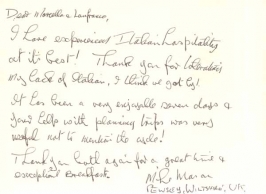 Dear Marcello & Lanfranco,
I have experienced Italian hospitality
at its best! Thank you for tolerating
my lack of Italian, I think we got by!
It has been a very enjoyable seven days &
your help with planning trips was very
useful not to mention the cycle!
Thank you both again for a great time &
exceptional breakfast.
Mike Moran
Pewsey, Wiltshire, UK.